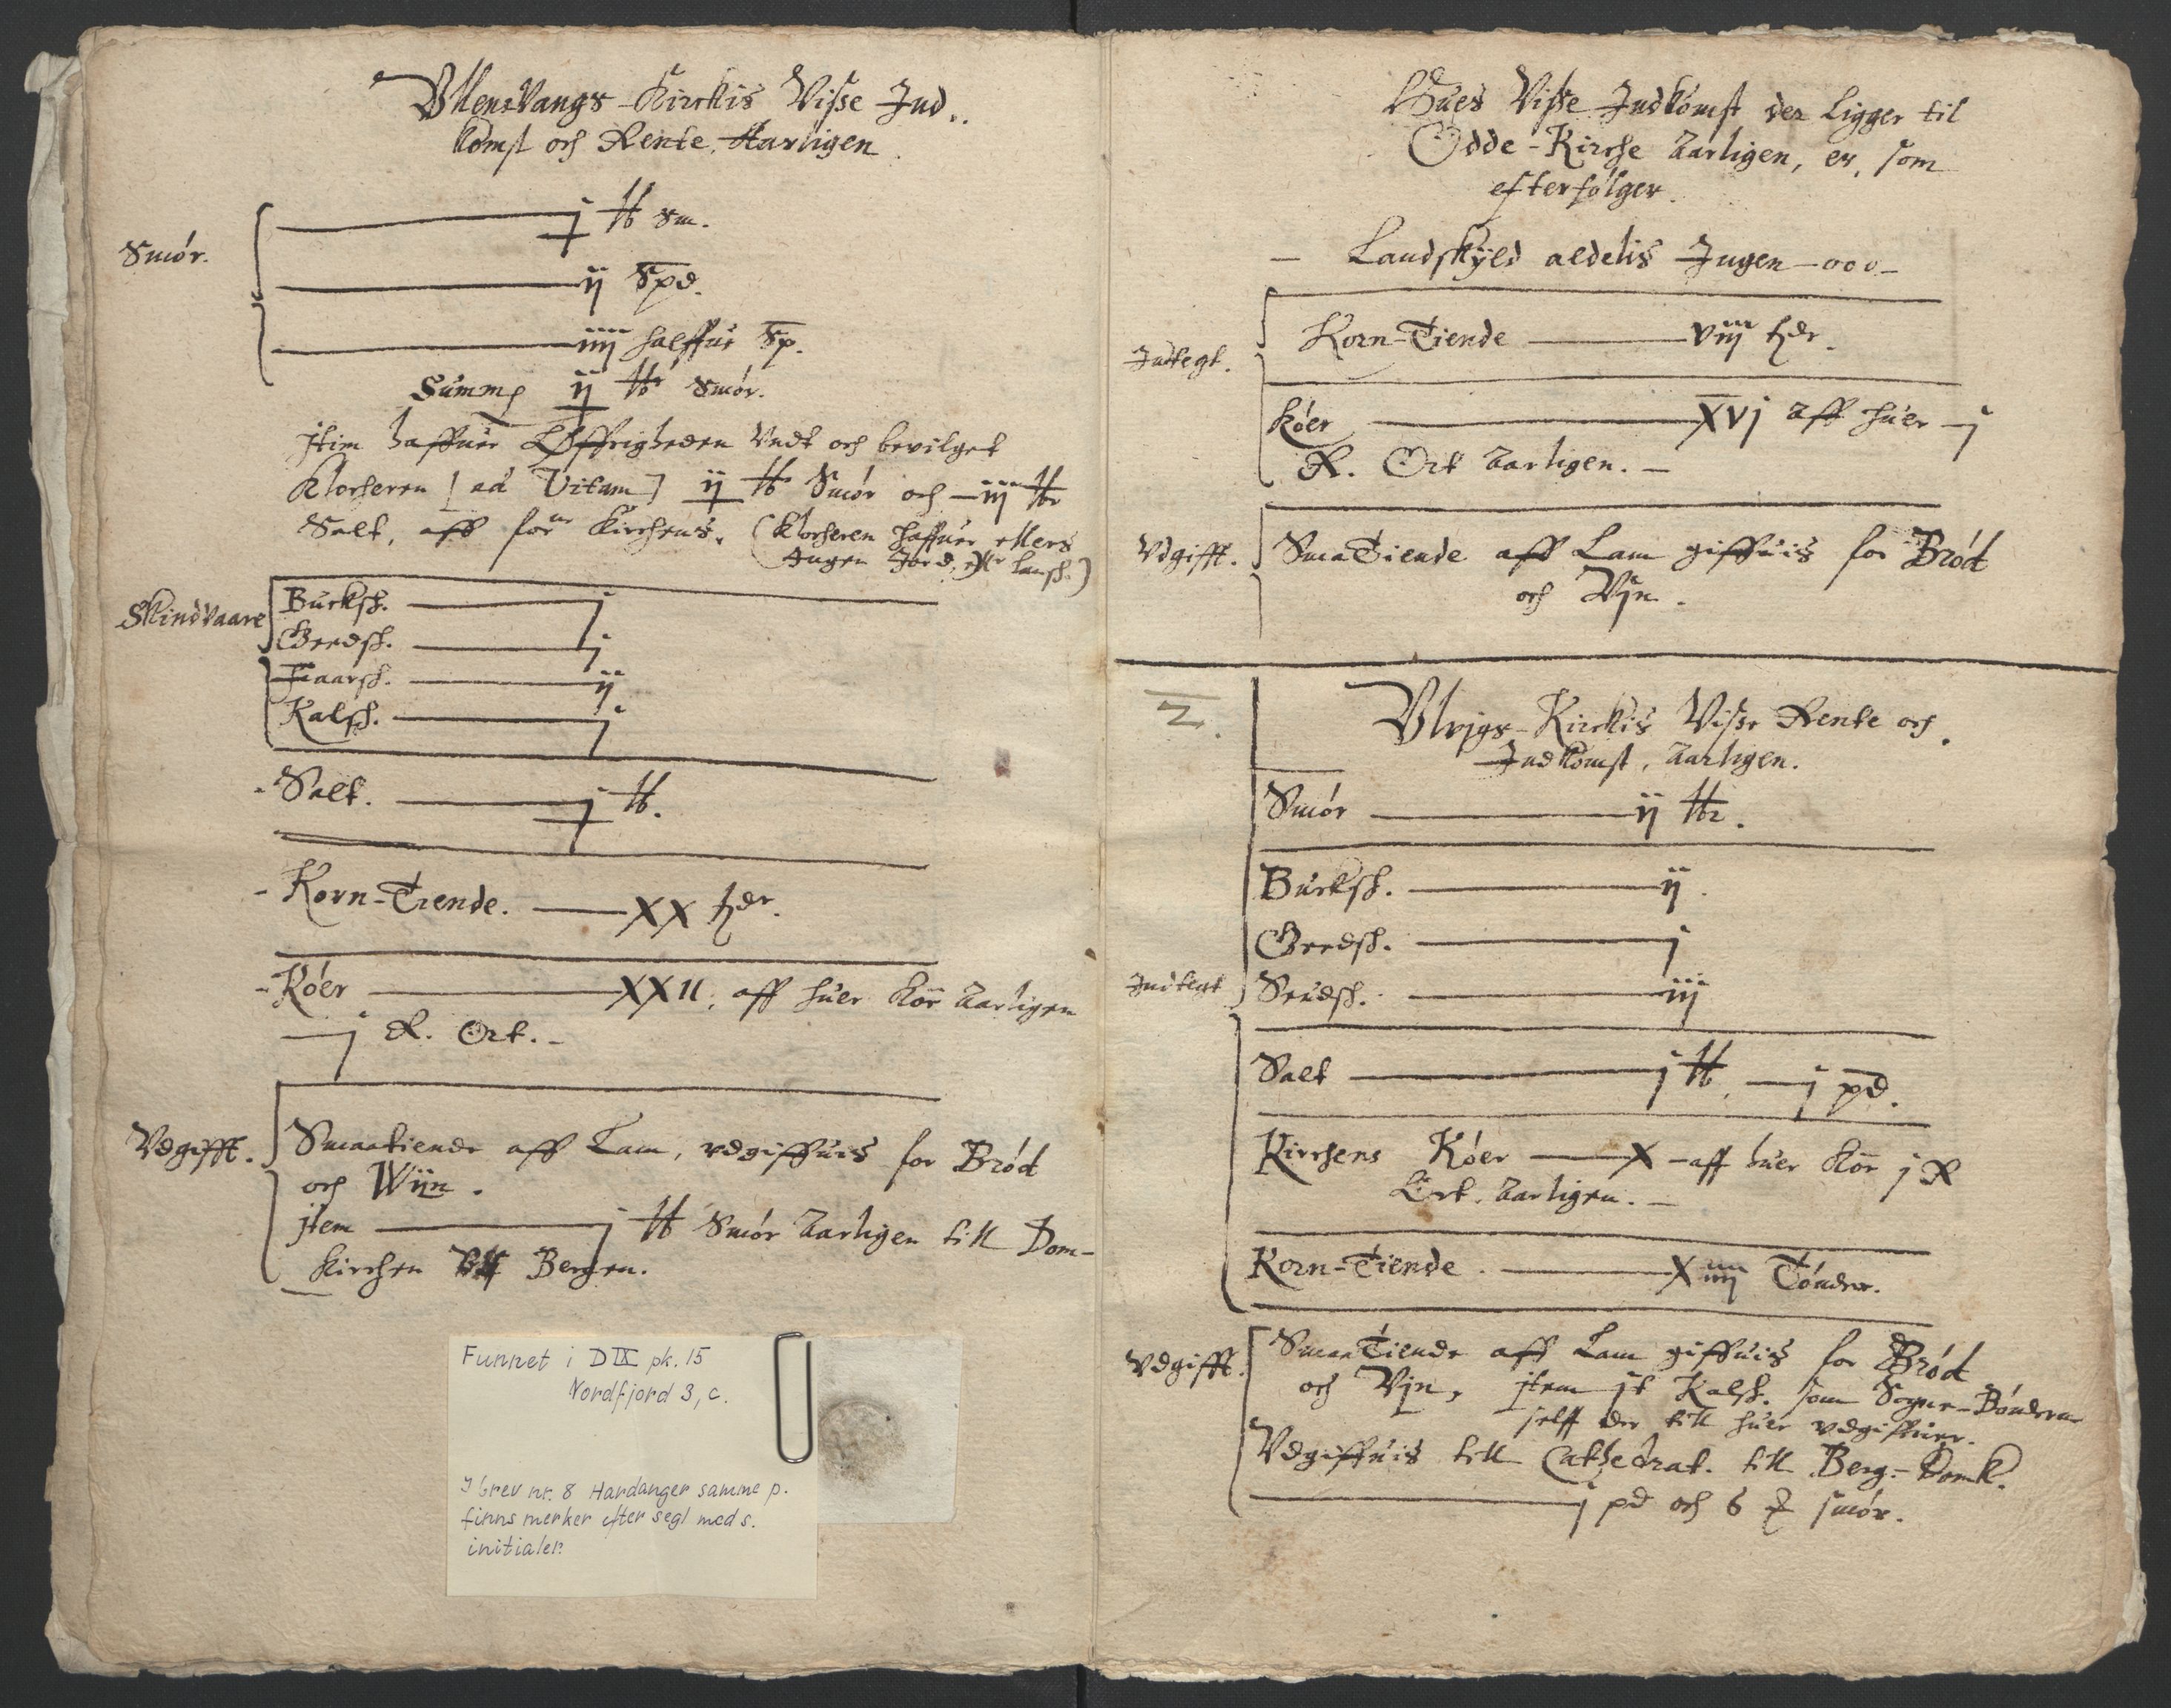 Vllensvangs-Kirckis Visse Ind..
komst och Rente Aarligen
Smør.
j tt sm.
ij Spd.
iiij halffue Sp.
Summa ij tt Smør.
jtem haffuer Øffrigheden Vndt och bevilget
Klocheren [ad Vitam] ij tt Smør och iij ttr
Salt, aff for Kirchens. (Klocheren haffuer ellers
Ingen Jord, eller Landsch.)
Skindvaare
Bucksk. j
Geedsk. j
Faarsk. ij
Kalsk. j
- Salt. j tt.
- Korn-Tiende. XX hdr.
- Køer XXII, aff huer Koe Aarligen
j R. Ort.-
Vdgifft.
Smaatiende aff Lam, vdgiffuis for Brød
och Wijn.
jtem j tt Smør Aarligen till Dom-
kirchen till Bergen.
Funnet i D IX pk. 15
Nordfjord 3, c.
I brev nr. 8 Hardanger samme p.
finns merker efter segl med s.
initialer.
Hues Visse Indkomst der Ligger til
Odde-Kirche Aarligen, er, som
efterfølger.
- Landskyld aldelis Ingen -000-
Indtegt.
Korn-Tiende viij hdr.
Køer XVj Aff huer j
R. Ort Aarligen.-
Vdgifft.
SmaTiende aff Lam giffuis for Brød
och Vjn.
2.
Vlvigs-Kirckis Visse Rente och
Indkomst, Aarligen.
Smør ij ttr.
Bucksk. ij.
Geedsk. j
Indtegt
Seudsk. iij
Salt j tt, j pd.
Kirchens Køer X -aff huer Koe j R
Ort. Aarligen.-
Korn-Tiende. Xiiij Tønder.
Vdgifft.
SmaaTiende aff Lam giffuis for Brød
och Vjn, jtem jt Kalsk. som Sogne-Bønderne
selff der till huer vdgiffuer.
Vdgiffuis till Cathedrat. till Berg.-Domk.
j pd och 6 smør.